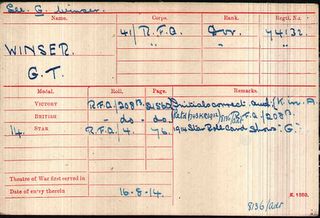 See. G. Winser.
Name. Corps. Rank. Regtl. No.
WINSER. 41/R.F.A. Gvr. 74132.
G.T. " "
Medal. Roll. Page. Remarks.
VICTORY R.F.A/208B. 21560 Initials correct Auth
BRITISH - do. do.
14 STAR R.F.A/4. 76. 1914 Star Roll Card Shows "G."
Theatre of War first served in
Date of entry therein 16-8-14.
K. 1380.
8136/Adr